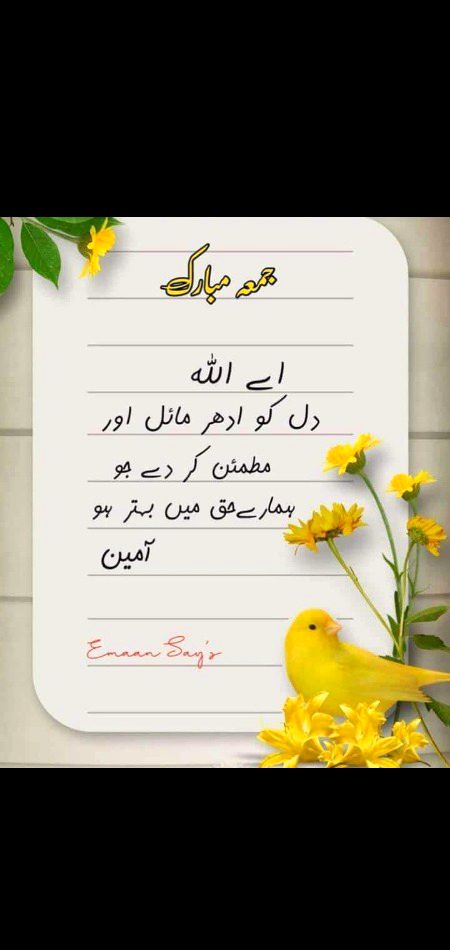 جمعہ مبارک
اے اللہ
دل کو ادھر مائل اور
مطمئن کر دے جو
ہمارے حق میں بہتر ہو
آمین
Emaan Say's